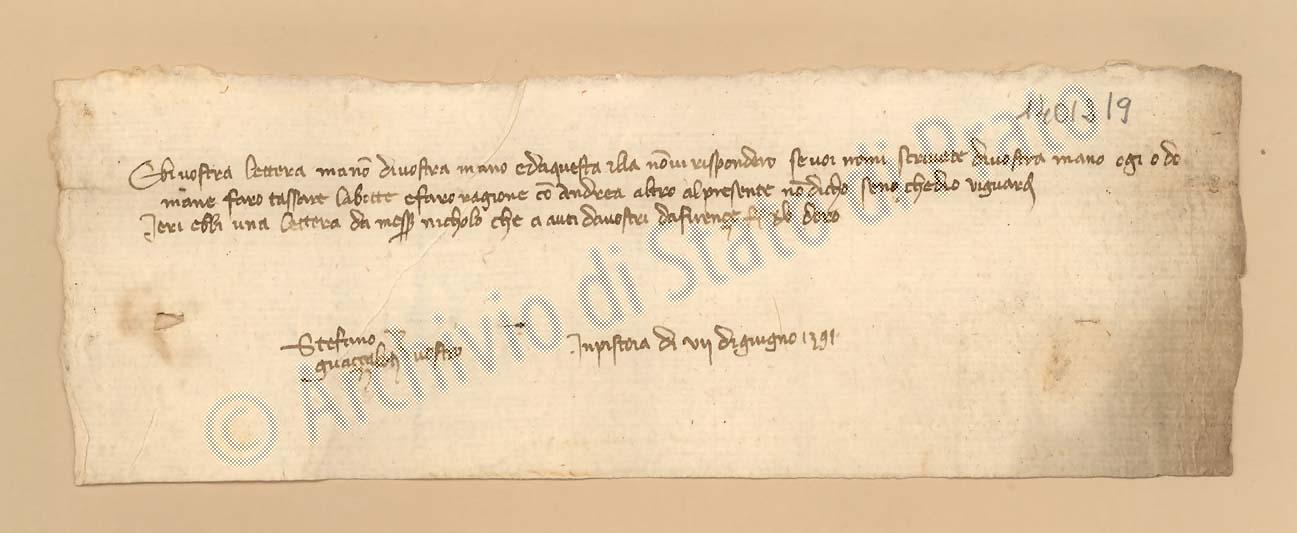 1401319
Ebi vostra lettera ma nō di vostra mano ed a questa illa nō vi rispondero se voi no mi scrivete di vostra mano ogi o do
mane faro tassare la botte e faro ragione cō Andrea altro al presente nō dicho seno che dio vi guard
Jeri ebbi una lettera da mess nicholo che a auti da vostri da firenze dero
Stefano
guazzaloti vostro
In pistoia di vii di giugno 1391
© Archivio di Stato di Prato